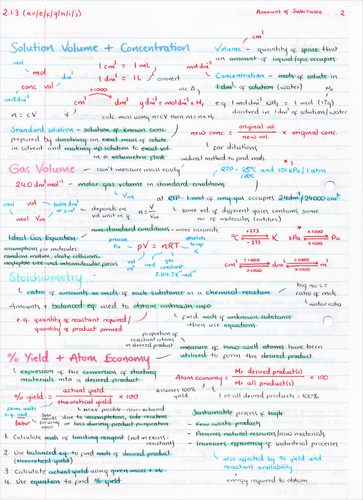 2.1.3 (av/e/f/g/h/i/j)
Amount of Substance 2
Solution Volume + Concentration
1 cm³ = 1 mL
1 dm³ = 1 L
convert
mol
mol
conc vol
mol dm⁻³
dm³
n = cV
cm³ ÷1000 dm³
g dm⁻³ = mol dm⁻³ × Mr
calc mass using n=cV then m = n × Mr
Volume - quantity of space that
an amount of liquid/gas occupies
Concentration - mols of solute in
1 dm³ of solution (water)
e.g. 1 mol dm⁻³ NH₃ = 1 mol (17g)
dissolved in 1 dm³ of solution/water
Standard solution - solution of known conc
prepared by dissolving an exact mass of solute
in solvent and making up solution to exact vol
in a volumetric flask
new conc = original vol. / new vol. × original conc.
for dilutions
Gas Volume - can't measure mass easily
indirect method to find mols
RTP - 25°C and 101 kPa / 1 atm
24.0 dm³ mol⁻¹ - molar gas volume in standard conditions
at RTP 1 mol of any gas occupies 24 dm³/24000 cm³
mol
vol
mol Vm
depends on
vol unit in
n = V/Vm
same vol of different gases contains same
no of molecules (entities)
non standard conditions - more accurate
Ideal Gas Equation
assumptions for molecules:
random motion, elastic collisions,
negligible size and intermolecular forces
pressure
Pa
pV = nRT
absolute temp
K
vol
m³
mol
gas constant
8.314 JK⁻¹ mol⁻¹
°C +273 K
-273
kPa ×1000 Pa
÷1000
cm³ ÷1000 dm³ ÷1000 m³
×1000 ×1000
Stoichiometry
ratio of amounts in mols of each substance in a chemical reaction
big no.s =
ratio of mols
molar ratio
Amounts + balanced eq used to obtain unknown info
e.g. quantity of reactant required/
quantity of product formed
find mols of unknown substance
then use equations
proportion of
reactant atoms
in desired product
measure of how well atoms have been
utilised to form the desired product
% Yield + Atom Economy
expression of the conversion of starting
materials into a desired product
Atom economy = Mr desired product(s) / Mr all product(s) × 100
% yield = actual yield / theoretical yield × 100
assumes 100%
yield
1 of all desired product = 100%
max possible - never achieved
due to incompletion, side reactions
or loss during product purification
Sustainable process if high:
- few waste products
- preserves natural resources/raw materials
- increases efficiency of industrial processes
1. Calculate mols of limiting reagent (not in excess-
reactant)
2. Use balanced eq to find mols of desired product
(theoretical yield)
3. Calculate actual yield using given mass + Mr
4. Use equations to find % yield
also affected by % yield and
reactant availability
energy required to obtain